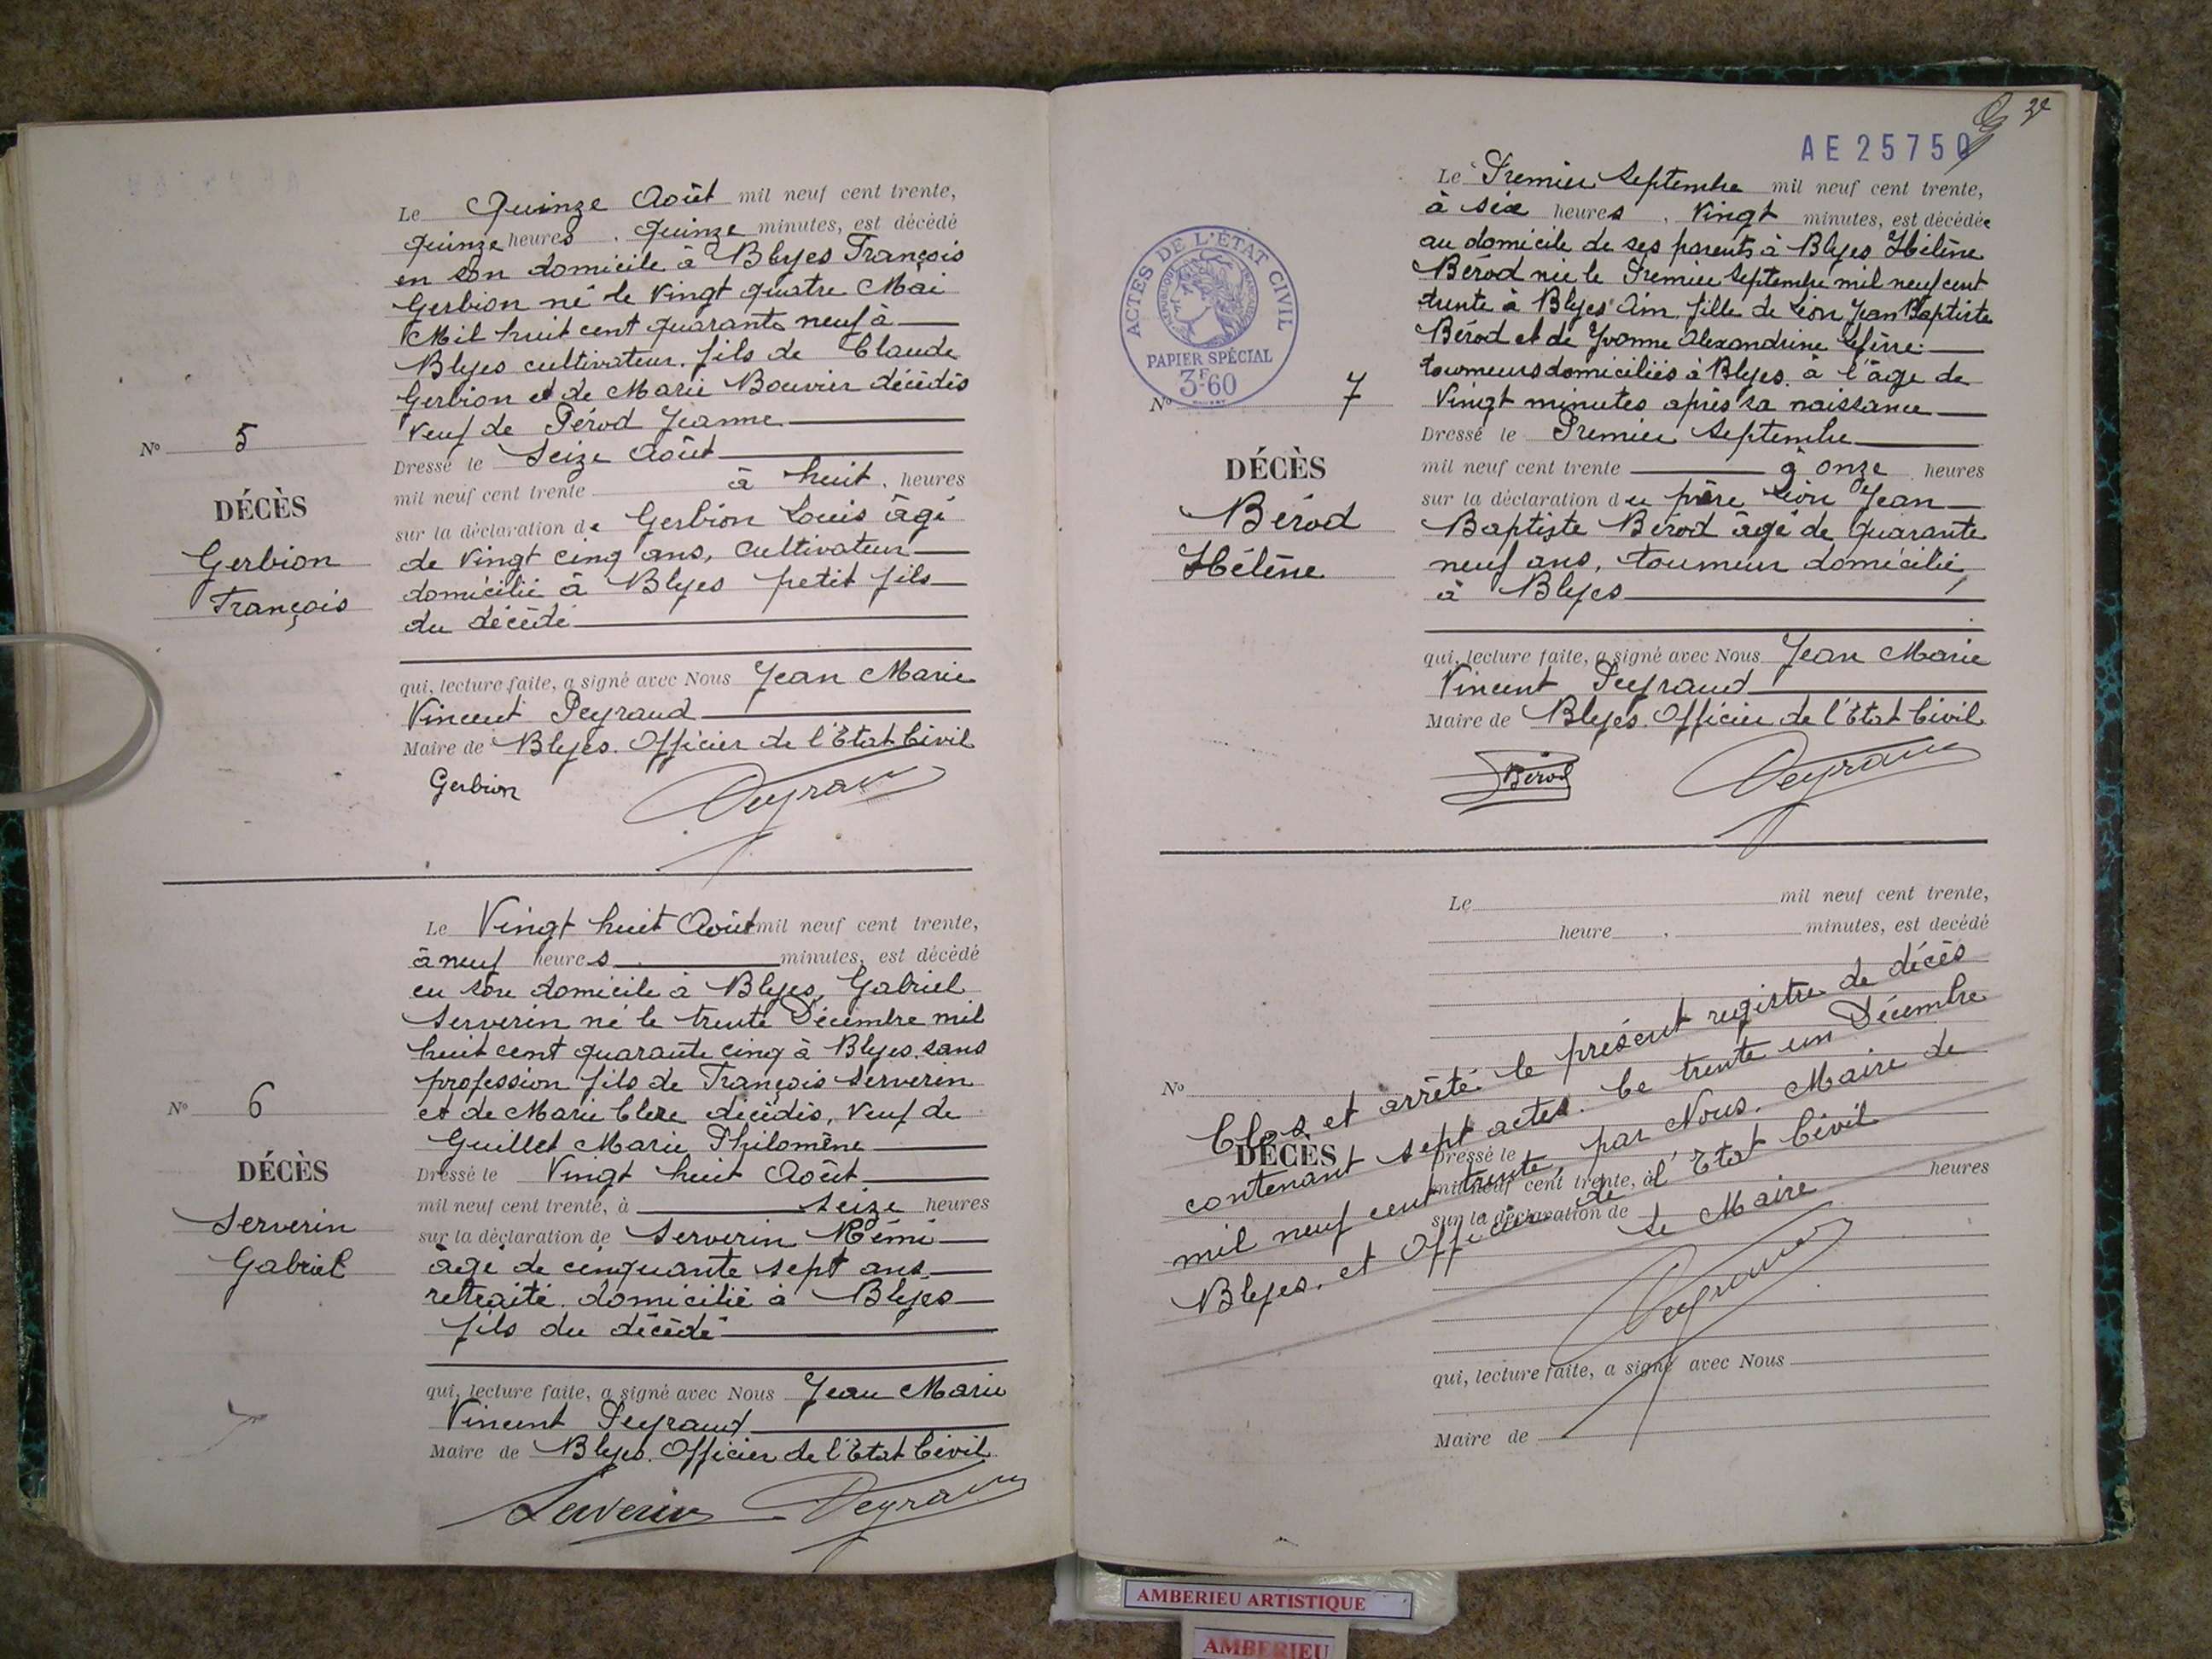 Le Quinze Août mil neuf cent trente,
quinze heures, quinze minutes, est décédé
en son domicile à Blyes François
Gerbion né le vingt quatre Mai
Mil huit cent quarante neuf à
Blyes cultivateur. fils de Claude
Gerbion et de Marie Bouvier décédés
veuf de Pérod Jeanne
Dressé le Seize Août
mil neuf cent trente à huit, heures
sur la déclaration de Gerbion Louis âgé
de vingt cinq ans, cultivateur
domicilié à Blyes petit fils
du décédé
qui, lecture faite, a signé avec Nous Jean Marie
Vincent Peyraud
Maire de Blyes. Officier de l'Etat Civil
Gerbion Peyraud
No 5
DÉCÈS
Gerbion
François
Le Vingt huit Août mil neuf cent trente,
à neuf heures minutes, est décédé
en son domicile à Blyes, Gabriel
Serverin né le trente Décembre mil
huit cent quarante cinq à Blyes. sans
profession fils de François Serverin
et de Marie Clere décédés, veuf de
Guillet Marie Philomène
Dressé le Vingt huit Août
mil neuf cent trente, à seize heures
sur la déclaration de Serverin Rémi
âgé de cinquante sept ans
retraité. domicilié à Blyes
fils du décédé
qui, lecture faite, a signé avec Nous Jean Marie
Vincent Peyraud
Maire de Blyes. Officier de l'Etat Civil
Serverin Peyraud
No 6
DÉCÈS
Serverin
Gabriel
AE 25750
Le Premier Septembre mil neuf cent trente,
à six heures, vingt minutes, est décédée
au domicile de ses parents à Blyes Hélène
Bérod née le Premier Septembre mil neuf cent
trente à Blyes Ain. fille de Léon Jean Baptiste
Bérod et de Yvonne Alexandrine
tourneurs domiciliés à Blyes. à l'âge de
Vingt minutes après sa naissance
Dressé le Premier Septembre
mil neuf cent trente à onze heures
sur la déclaration du père Léon Jean
Baptiste Bérod âgé de quarante
neuf ans, tourneur domicilié
à Blyes
qui, lecture faite, a signé avec Nous Jean Marie
Vincent Peyraud
Maire de Blyes. Officier de l'Etat Civil
Bérod Peyraud
ACTES DE L'ÉTAT CIVIL
PAPIER SPÉCIAL
3F60
No 7
DÉCÈS
Bérod
Hélène
Le mil neuf cent trente,
heure, minutes, est décédé
No
DÉCÈS
Dressé le
mil neuf cent trente, à heures
sur la déclaration de
qui, lecture faite, a signé avec Nous
Maire de
Clos et arrêté le présent registre de décès
contenant sept actes. Ce trente un Décembre
mil neuf cent trente, par Nous. Maire de
Blyes. et Officier de l'Etat Civil
Le Maire
Peyraud
AMBERIEU ARTISTIQUE
AMBERIEU